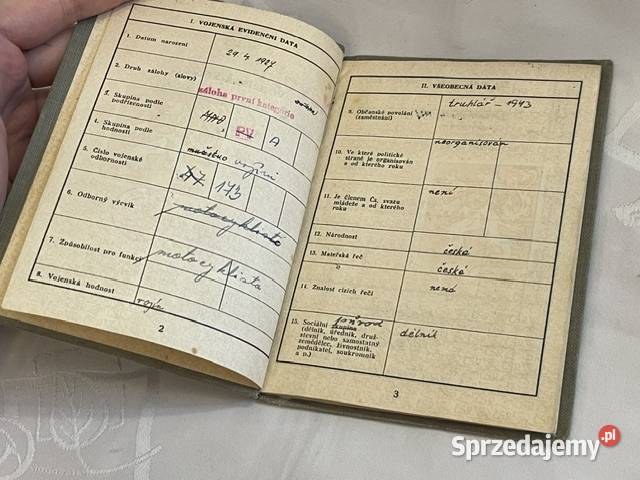 I. VOJENSKÁ EVIDENČNÍ DATA
1. Datum narození
29. 4. 1927
2. Druh zálohy (slovy)
záloha první kategorie
3. Skupina podle
podřízenosti
A
4. Skupina podle
hodnosti
mužstvo vojín
5. Číslo vojenské
odbornosti
173
6. Odborný výcvik
motocyklista
7. Způsobilost pro funkci
motocyklista
8. Vojenská hodnost
vojín
2
II. VŠEOBECNÁ DATA
9. Občanské povolání
(zaměstnání)
truhlář - 1943
10. Ve které politické
straně je organisován
a od kterého roku
neorganisován
11. Je členem Čs. svazu
mládeže a od kterého
roku
není
12. Národnost
česká
13. Mateřská řeč
česká
14. Znalost cizích řečí
nemá
15. Sociální původ
skupina
(dělník, úředník, druž-
stevní nebo samostatný
zemědělec, živnostník,
podnikatel, soukromník
a p.)
dělník
3
Sprzedajemy.pl